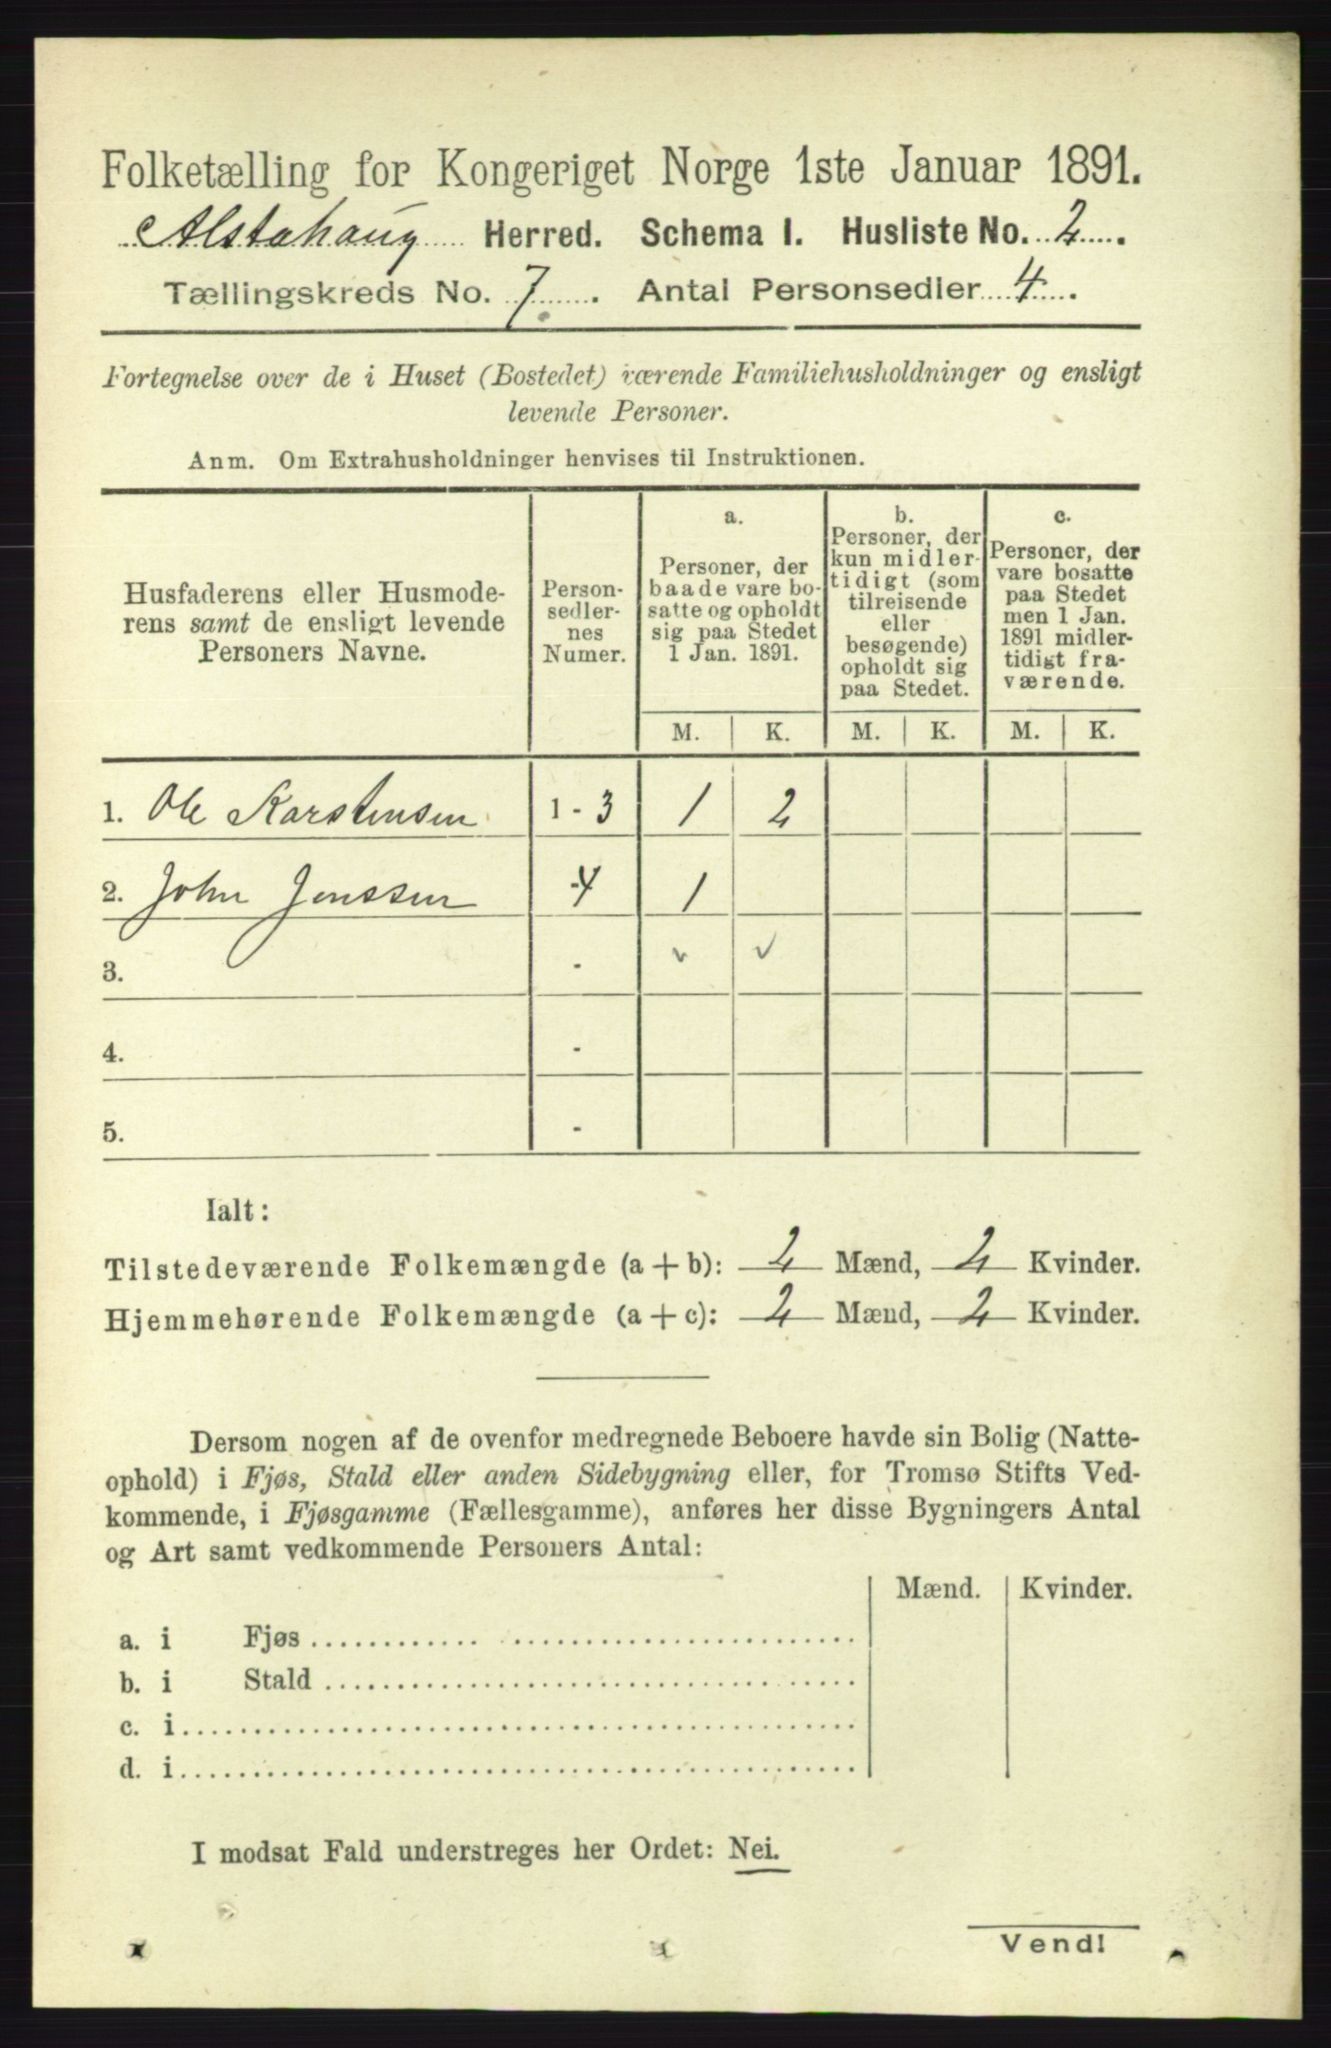 Folketælling for Kongeriget Norge 1ste Januar 1891.
Alstahaug Herred. Schema I. Husliste No. 2
Tællingskreds No. 7. Antal Personsedler 4
Fortegnelse over de i Huset (Bostedet) værende Familiehusholdninger og ensligt
levende Personer.
Anm. Om Extrahusholdninger henvises til Instruktionen.
Husfaderens eller Husmode-
rens samt de ensligt levende
Personers Navne.
Person-
sedler-
nes
Numer.
a.
Personer, der
baade vare bo-
satte og opholdt
sig paa Stedet
1 Jan. 1891.
b.
Personer, der
kun midler-
tidigt (som
tilreisende
eller
besøgende)
opholdt sig
paa Stedet.
c.
Personer, der
vare bosatte
paa Stedet
men 1 Jan.
1891 midler-
tidigt fra-
værende.
M. K. M. K. M. K.
1. Ole Karstensen 1 - 3 1 2
2. John Jenssen - 4 1
3. - ✓ ✓
4. -
5. -
Ialt:
Tilstedeværende Folkemængde (a + b): 2 Mænd, 2 Kvinder.
Hjemmehørende Folkemængde (a + c): 2 Mænd, 2 Kvinder.
Dersom nogen af de ovenfor medregnede Beboere havde sin Bolig (Natte-
ophold) i Fjøs, Stald eller anden Sidebygning eller, for Tromsø Stifts Ved-
kommende, i Fjøsgamme (Fællesgamme), anføres her disse Bygningers Antal
og Art samt vedkommende Personers Antal:
Mænd. Kvinder.
a. i Fjøs
b. i Stald
c. i
d. i
I modsat Fald understreges her Ordet: Nei.
Vend!